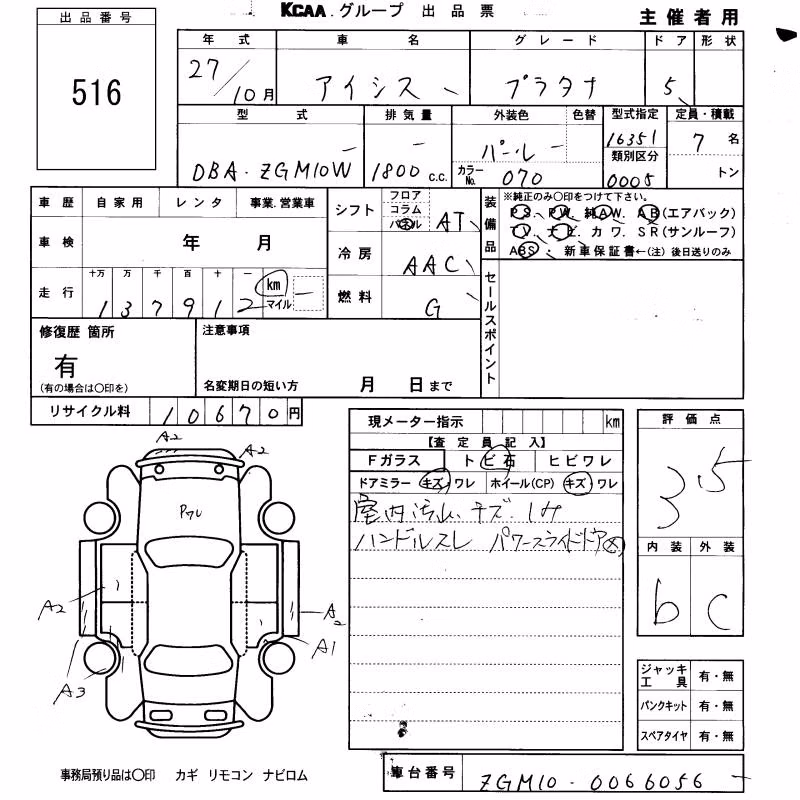 KCAA.グループ 出品票
主催者用
出品番号
516
年式 車名 グレード ドア 形状
27/10月 アイシス プラタナ 5
型式 排気量 外装色 色替 型式指定 定員・積載
DBA-ZGM10W 1800 c.c. パール 16351 7名
カラーNo. 070 類別区分 0005 トン
車歴 自家用 レンタ 事業.営業車
車検 年 月
走行 十万 万 千 百 十 一
137912 km マイル
シフト フロア コラム パネル AT
冷房 AAC
燃料 G
装備品 ※純正のみ〇印をつけて下さい。
PS、PW、純AW、AB(エアバック)
TV、ナビ、カワ、SR(サンルーフ)
ABS・新車保証書←(注)後日送りのみ
セールスポイント
修復歴 箇所
有
(有の場合は〇印を)
注意事項
名変期日の短い方 月 日まで
リサイクル料 10670円
現メーター指示 km
【査定員記入】
Fガラス トビ石 ヒビワレ
ドアミラー キズ ワレ ホイール(CP) キズ ワレ
室内汚れ、キズ、シみ
ハンドルスレ パワースライドドア
評価点
3 5
内装 外装
b c
A2
A2
A2
A2
A1
A3
ジャッキ工具 有・無
パンクキット 有・無
スペアタイヤ 有・無
事務局預り品は〇印 カギ リモコン ナビロム
車台番号 ZGM10-0066056